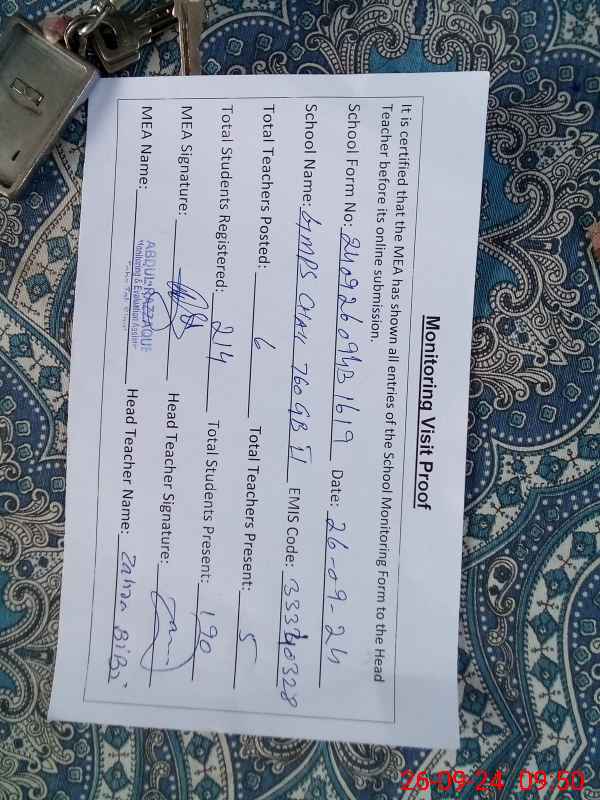 Monitoring Visit Proof
It is certified that the MEA has shown all entries of the School Monitoring Form to the Head
Teacher before its online submission.
School Form No: 24092609HB1619 Date: 26-09-24
School Name: GMPS CHAK 760 GB II EMIS Code: 33340328
Total Teachers Posted: 6 Total Teachers Present: 5
Total Students Registered: 214 Total Students Present: 190
MEA Signature: Head Teacher Signature:
MEA Name: ABDUL RAZZAQUE Head Teacher Name: Zahra BiBi
Monitoring & Evaluation Assistant
26-09-24 09:50